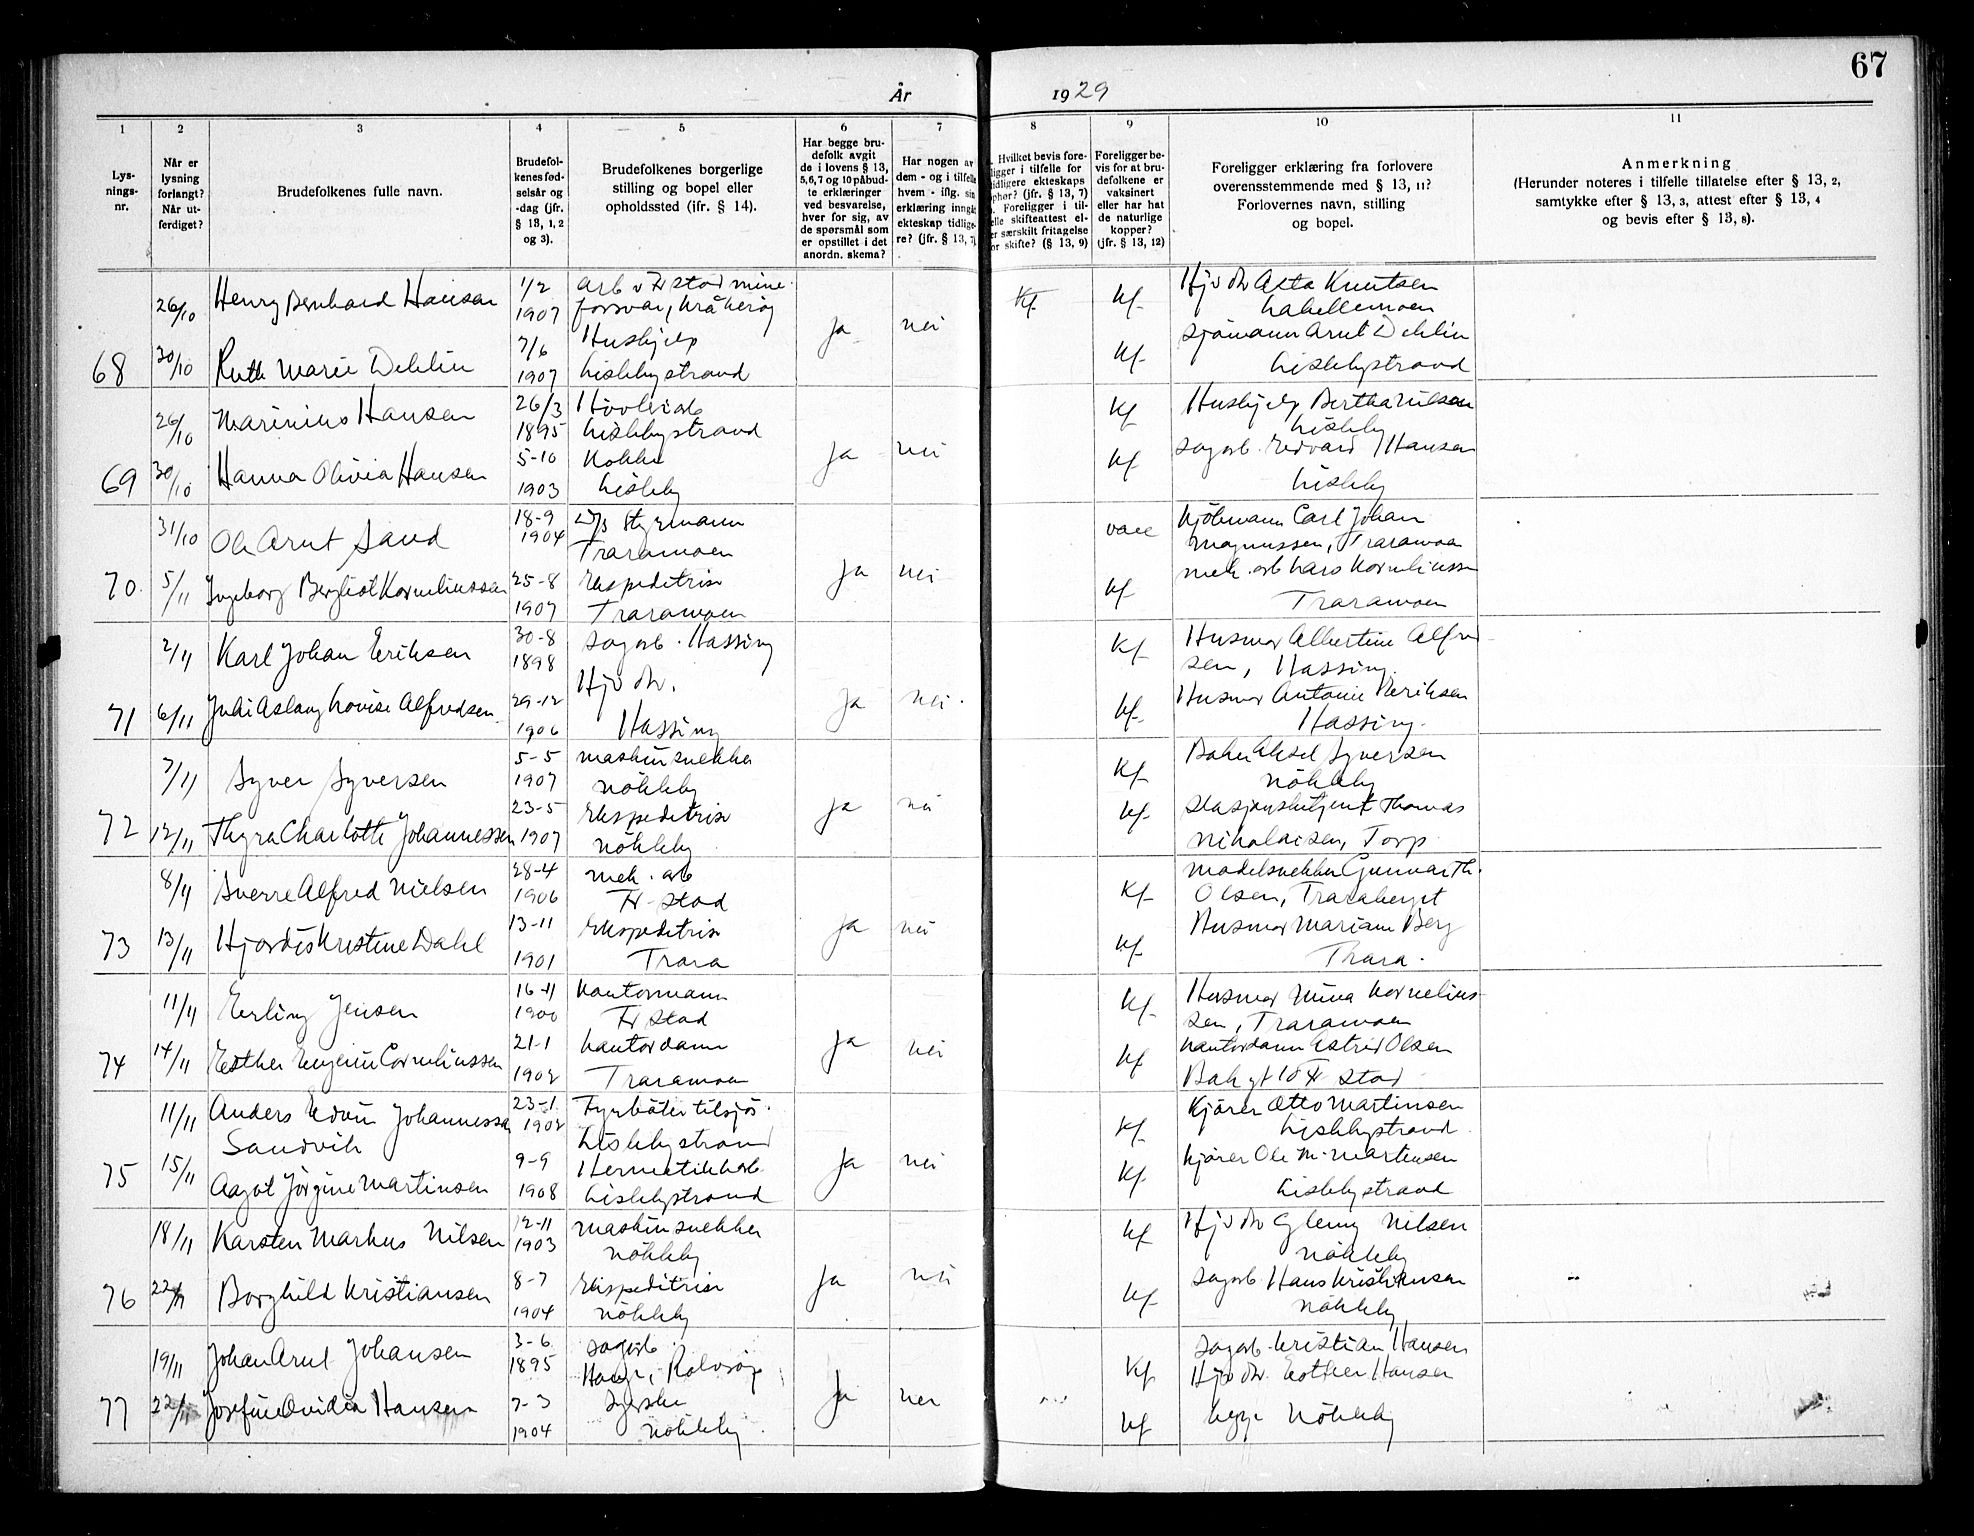 67
År 1929
1 2 3 4 5 6 7 8 9 10 11
Lys-
nings-
nr.
Når er
lysning
forlangt?
Når ut-
ferdiget?
Brudefolkenes fulle navn.
Brudefol-
kenes fød-
selsår og
-dag (jfr.
§ 13, 1, 2
og 3).
Brudefolkenes borgerlige
stilling og bopel eller
opholdssted (jfr. § 14).
Har begge bru-
defolk avgit
de i lovens § 13,
5,6,7 og 10 påbud-
te erklæringer
ved besvarelse,
hver for sig, av
de spørsmål som
er opstillet i det
anordn. skema?
Har nogen av
dem - og i tilfelle
hvem - iflg. sin
erklæring inngått
ekteskap tidlige-
re? (jfr. § 13, 7)
Hvilket bevis fore-
ligger i tilfelle for
tidligere ekteskaps
ophør? (jfr. § 13, 7)
Foreligger i til-
felle skifteattest el-
ler særskilt fritagelse
for skifte? (§ 13, 9)
Foreligger be-
vis for at bru-
defolkene er
vaksinert
eller har hat
de naturlige
kopper?
(jfr. § 13, 12)
Foreligger erklæring fra forlovere
overensstemmende med § 13, 11?
Forlovernes navn, stilling
og bopel.
Anmerkning
(Herunder noteres i tilfelle tillatelse efter § 13, 2,
samtykke efter § 13, 3, attest efter § 13, 4
og bevis efter § 13, 8).
26/10 Henry Bernhard Hansen 1/2 1907 arb v Fr.stad mine-
forsvar, Kråkerøy
kf kf Hjv dtr Asta Knutsen
Labellemoen
68 30/10 Ruth Marie Dehlin 7/6 1907 Hushjelp
Lislebystrand
ja nei kf sjømann Arnt Dehlin
Lislebystrand
26/10 Marinius Hansen 26/3 1895 Høvleriarb
Lislebystrand
kf Hushjelp Bertha Nilsen
Lisleby
69 30/10 Hanna Olivia Hansen 5-10 1903 Kokke
Lisleby
ja nei kf sagarb. Edvard Hansen
Lisleby
31/10 Ole Arnt Sand 18-9 1904 D/S Styrmann
Traramoen
vacc Kjøbmann Carl Johan
Magnussen, Traramoen
70. 5/11 Ingeborg Bergliot Korneliussen 25-8 1907 Ekspeditrise
Traramoen
ja nei kf mek. arb Lars Korneliussen
Traramoen
2/11 Karl Johan Eriksen 30-8 1898 sagarb. Hassing
kf Husmor Albertine Alfred-
sen, Hassing.
71 6/11 Julie Aslaug Lovise Alfredsen 29-12 1906 Hjv dtr.
Hassing
ja nei. kf Husmor Antonie Eriksen
Hassing.
7/11 Syver Syversen 5-5 1907 maskinsnekker
Nökleby
kf Baker Aksel Syversen
Nökleby
72 12/11 Thyra Charlotte Johannessen 23-5 1907 Ekspeditrise
Nökleby
ja nei kf Stasjonsbetjent Thomas
Nikolaisen, Torp
8/11 Sverre Alfred Nielsen 28-4 1906 mek. arb
Fr-stad
kf Modelsnekker Gunnar Th.
Olsen, Traraberget
73 13/11 Hjordis Kristine Dahl 13-11 1901 Ekspeditrise
Trara
ja nei kf Husmor Mariane Berg
Trara.
11/11 Erling Jensen 16-11 1900 Kontormann
Fr stad
kf Husmor Mina Kornelius-
sen, Traramoen
74 14/11 Esther Eugenie Corneliussen 21-1 1902 Kontordame
Traramoen
ja nei kf Kontordame Astrid Olsen
Bakgt 10 Fr stad
11/11 Anders Edvin Johannessen
Sandvik
23-1 1902 Fyrbøter tilsjøs.
Lislebystrand
kf Kjører Otto Martinsen
Lislebystrand
75 15/11 Aagot Jörgine Martinsen 9-9 1908 Hermetikkarb.
Lislebystrand
ja nei kf Kjører Ole M. Martinsen
Lislebystrand
18/11 Karsten Markus Nilsen 12-11 1903 maskinsnekker
Nökleby
kf Hjv dtr Glenny Nilsen
Nökleby
76 22/11 Borghild Kristiansen 8-7 1904 Ekspeditrise
Nökleby
ja nei kf sagarb. Hans Kristiansen
Nökleby
19/11 Johan Arnt Johansen 3-6 1895 sagarb.
Hauge, Rolvsøy
kf sagarb. Kristian Hansen
Hjv dtr. Esther Hansen
77 22/11 Josefine Ovidia Hansen 7-3 1904 Syerske
Nökleby.
ja nei kf begge Nökleby